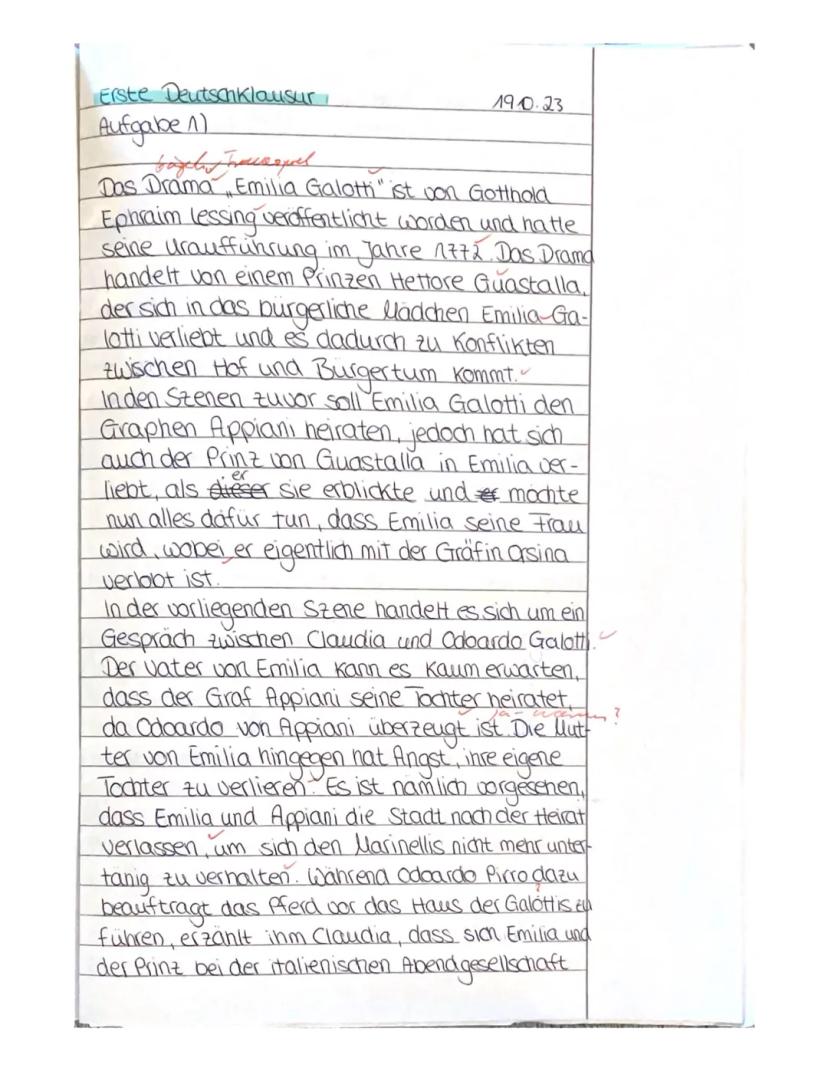 Erste Deutschklausur 19.10.23
Aufgabe 1)
bürgerl. Trauerspiel
Das Drama „Emilia Galotti" ist von Gotthold
Ephraim Lessing veröffentlicht worden und hatte
seine Uraufführung im Jahre 1772. Das Drama
handelt von einem Prinzen Hettore Guastalla,
der sich in das bürgerliche Mädchen Emilia Ga-
lotti verliebt und es dadurch zu Konflikten
zwischen Hof und Bürgertum kommt.
In den Szenen zuvor soll Emilia Galotti den
Graphen Appiani heiraten, jedoch hat sich
auch der Prinz von Guastalla in Emilia ver-
liebt, als dieser er sie erblickte und er möchte
nun alles dafür tun, dass Emilia seine Frau
wird, wobei er eigentlich mit der Gräfin Orsina
verlobt ist.
In der vorliegenden Szene handelt es sich um ein
Gespräch zwischen Claudia und Odoardo Galotti.
Der Vater von Emilia kann es kaum erwarten,
dass der Graf Appiani seine Tochter heiratet,
ja - warum?
da Odoardo von Appiani überzeugt ist. Die Mut-
ter von Emilia hingegen hat Angst, ihre eigene
Tochter zu verlieren. Es ist nämlich vorgesehen,
dass Emilia und Appiani die Stadt nach der Heirat
verlassen, um sich den Marinellis nicht mehr unter-
tänig zu verhalten. Während Odoardo Pirro dazu
beauftragt das Pferd vor das Haus der Galottis zu
führen, erzählt ihm Claudia, dass sich Emilia und
der Prinz bei der italienischen Abendgesellschaft